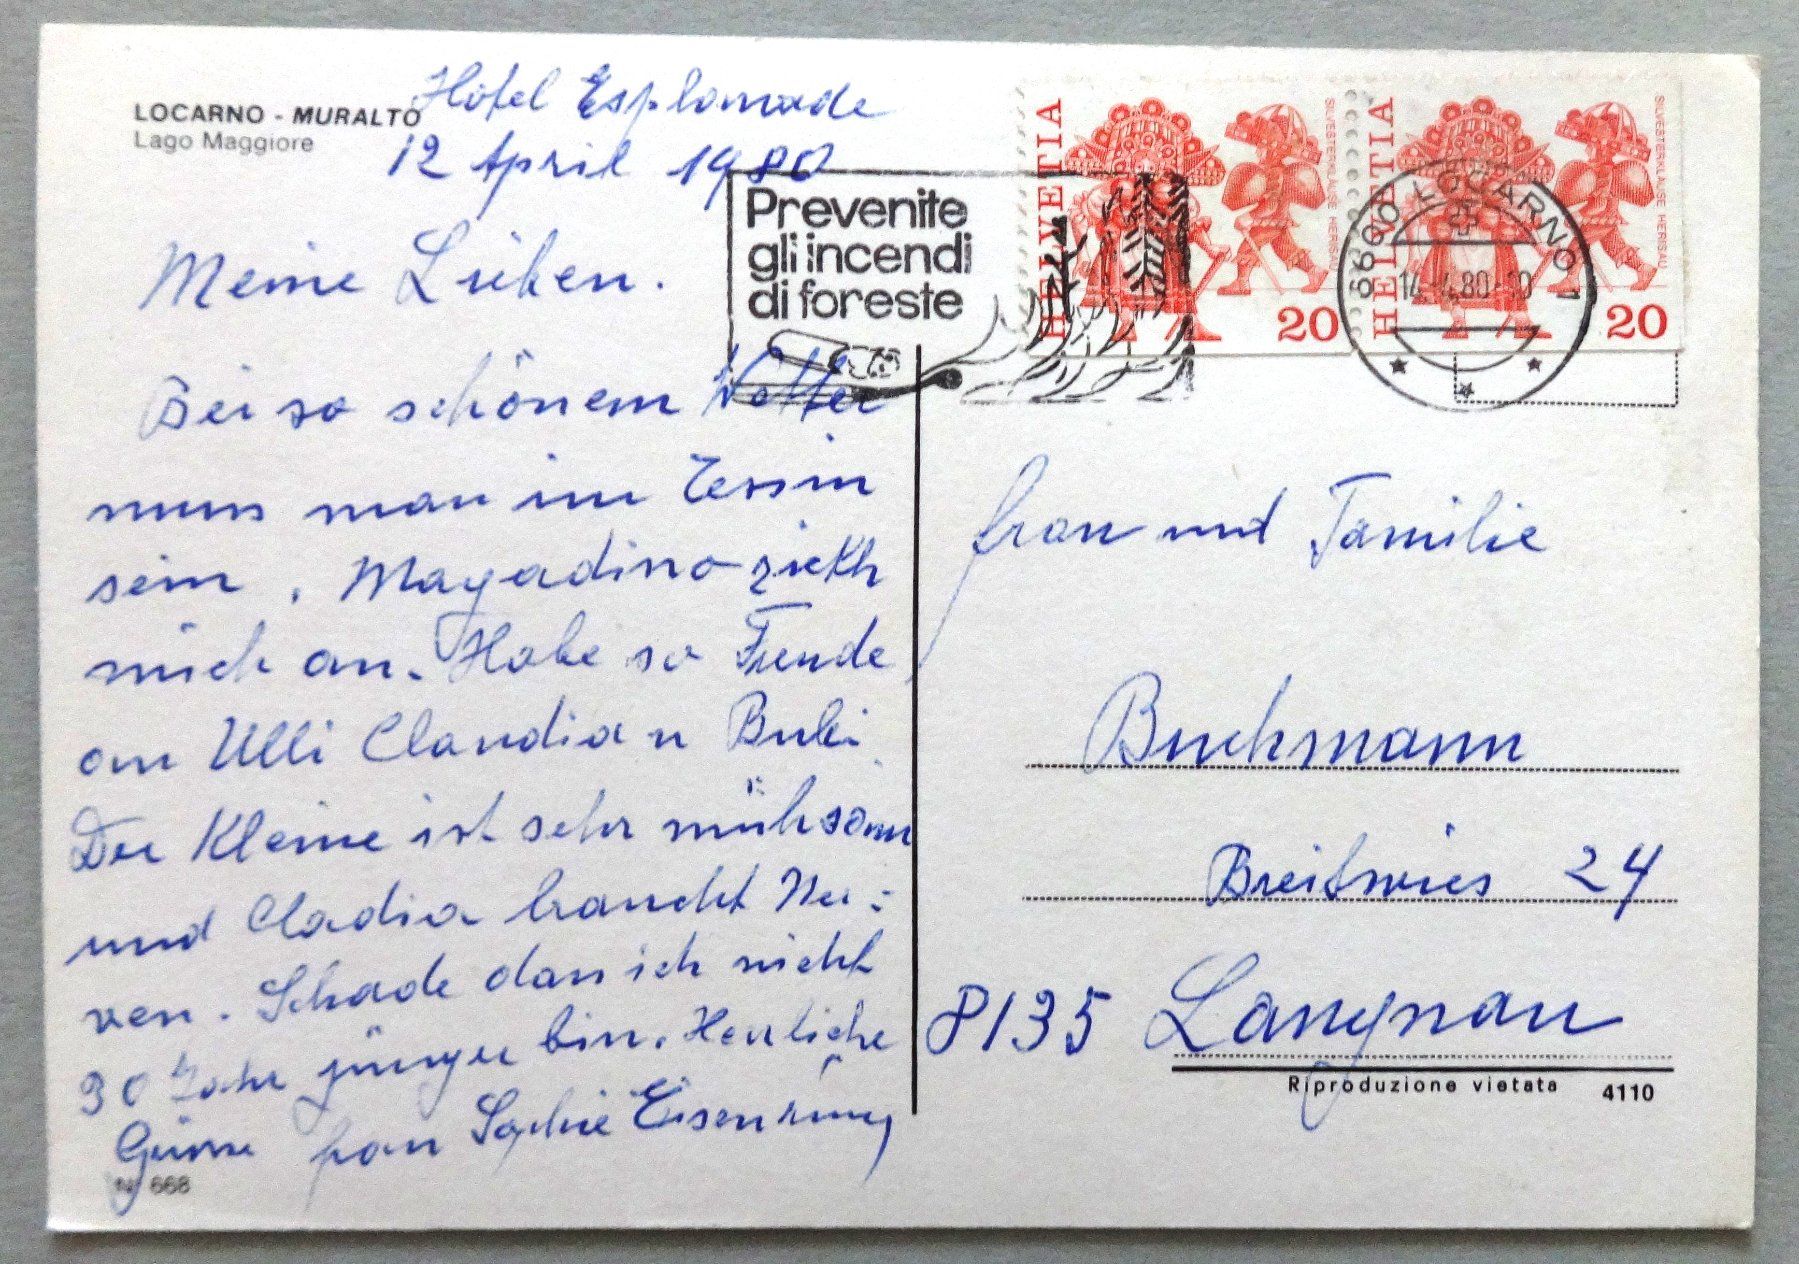 LOCARNO - MURALTO
Lago Maggiore
Hotel Esplanade
12 April 1980
Meine Lieben.
Bei so schönem Wetter
muss man im Tessin
sein. Magadino zieht
mich an. Habe so Freude
an Ulli Claudia u Bubi.
Der Kleine ist sehr mühsam
und Cladia braucht Ner:
ven. Schade dass ich nicht
30 Jahr jünger bin. Herzliche
Grüsse frau Sophie Eisenring
Nr 668
Prevenite
gli incendi
di foreste
HELVETIA
SILVESTERKLÄUSE HERISAU
20
HELVETIA
SILVESTERKLÄUSE HERISAU
20
6600 LOCARNO 1
14.-4.80-10
frau und Familie
Buchmann
Breitwies 24
8135 Langnau
Riproduzione vietata
4110